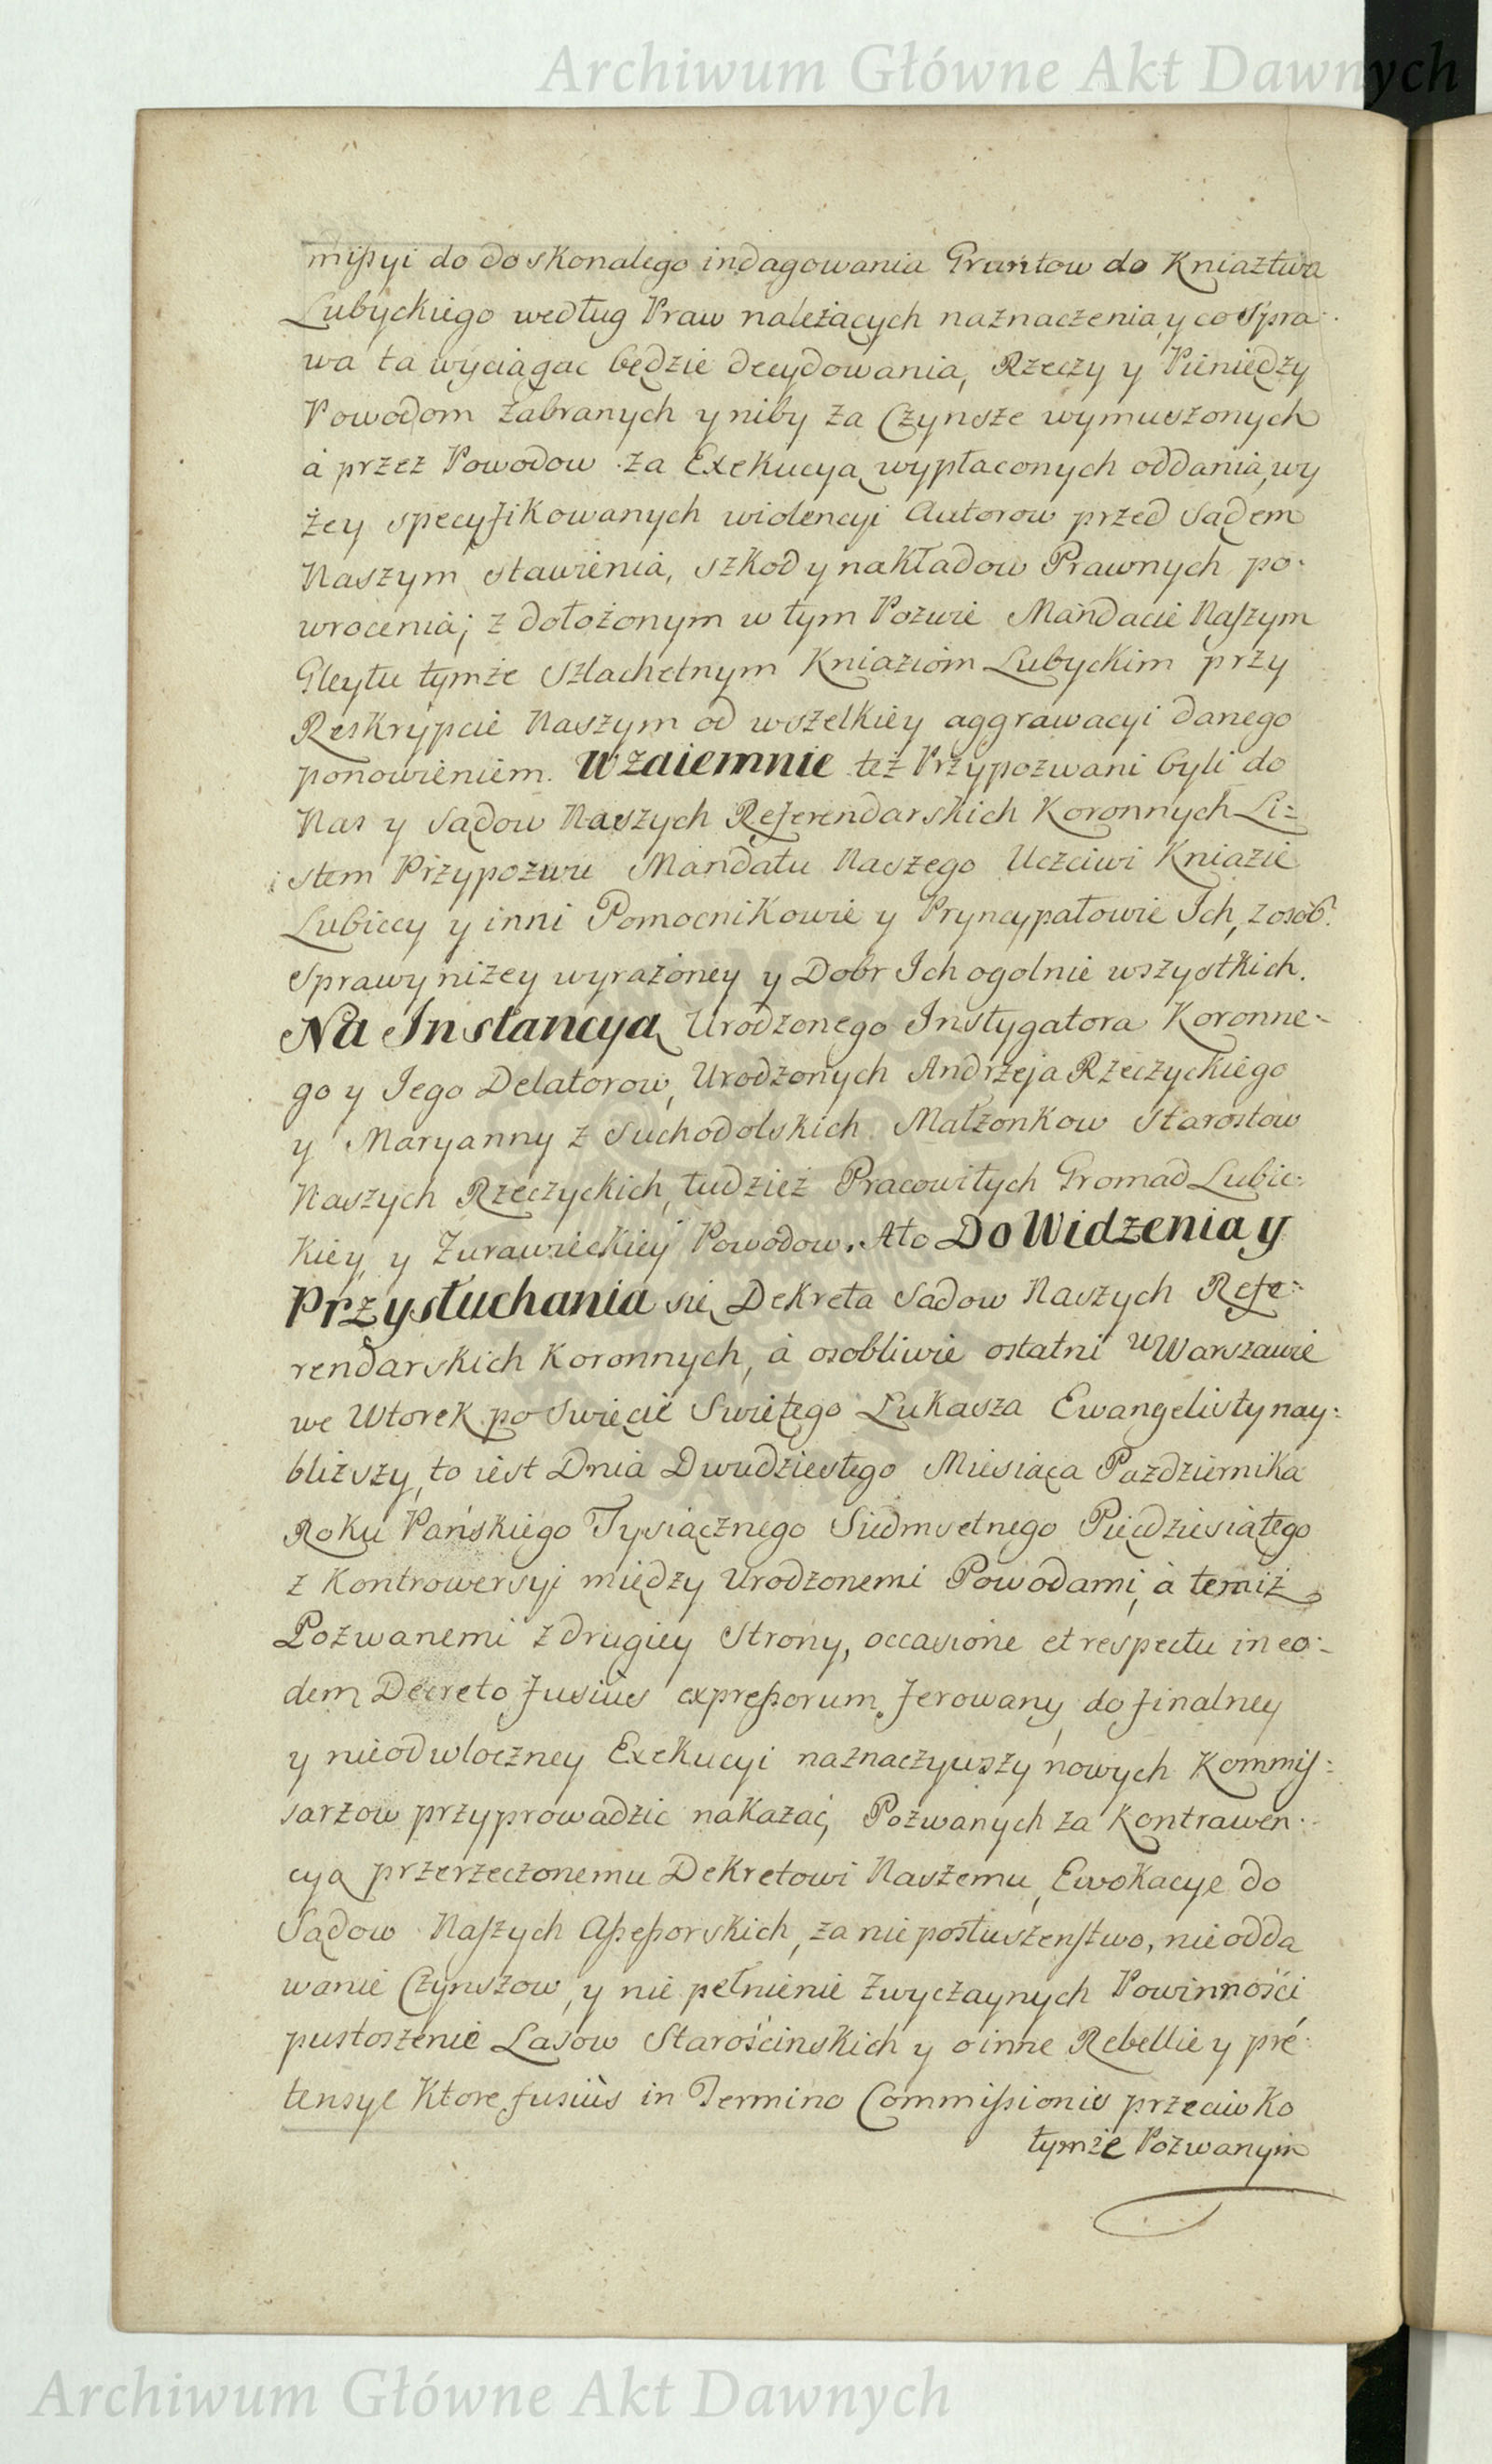 Archiwum Główne Akt Dawnych
mißyi do doskonalego indagowania Gruntow do Kniaztwa
Lubyckiego według Praw należących naznaczenia, y co Spra-
wa ta wyciągac będzie decydowania, Rzeczy y Pieniędzy
Powodom zabranych y niby za Czynsze wymuszonych
à przez Powodow za Exekucyą wypłaconych oddania, wy
żey specyfikowanych wiolencyi Autorow przed Sądem
Naszym stawienia, szkod y nakładow Prawnych po-
wrocenia; z dołożonym w tym Pozwie Mandacie Naszym
Gleytu tymże Szlachetnym Kniaziom Lubyckim przy
Reskrypcie Naszym od wszelkiey aggrawacyi danego
ponowieniem. Wzaiemnie też Przypozwani byli do
Nas y Sądow Naszych Referendarskich Koronnych Li-
stem Przypozwu Mandatu Naszego Uczciwi Kniazie
Lubiccy y inni Pomocnikowie y Pryncypałowie Ich, z osob
Sprawy niżey wyrażoney y Dobr Ich ogolnie wszystkich.
Na Instancyą Urodzonego Instygatora Koronne-
go y Jego Delatorow, Urodzonych Andrzeja Rzeczyckiego
y Maryanny z Suchodolskich Małżonkow Starostow
Naszych Rzeczyckich, tudzież Pracowitych Gromad Lubic-
kiey y Zurawieckiey Powodow. Ato Do Widzenia y
Przysłuchania się Dekreta Sądow Naszych Refe-
rendarskich Koronnych, à osobliwie ostatni w Warszawie
we Wtorek po Swięcie Swiętego Lukasza Ewangelisty nay-
bliższy, to iest Dnia Dwudziestego Miesiąca Pazdziernika
Roku Pańskiego Tysiącznego Siedmsetnego Pięćdziesiątego
z Kontrowersyi między Urodzonemi Powodami, à temiż
Pozwanemi z drugiey Strony, occasione et respectu in eo-
dem Decreto fusius expreßorum ferowany, do finalney
y nieodwloczney Exekucyi naznaczywszy nowych Kommis-
sarzow przyprowadzic nakazać, Pozwanych za Kontrawen-
cyą przerzeczonemu Dekretowi Naszemu, Ewokacye do
Sądow Naszych Aßeßorskich, za nieposłuszenstwo, nie odda
wanie Czynszow, y nie pełnienie zwyczaynych Powinnosci
pustoszenie Lasow Starościnskich y o inne Rebellie y pre-
tensye Ktore fusiùs in Termino Commißionis przeciwko
tymże Pozwanym
Archiwum Główne Akt Dawnych